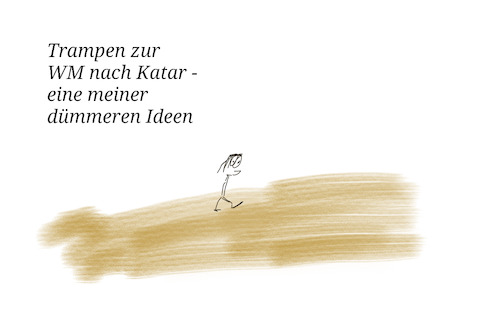 Trampen zur
WM nach Katar -
eine meiner
dümmeren Ideen